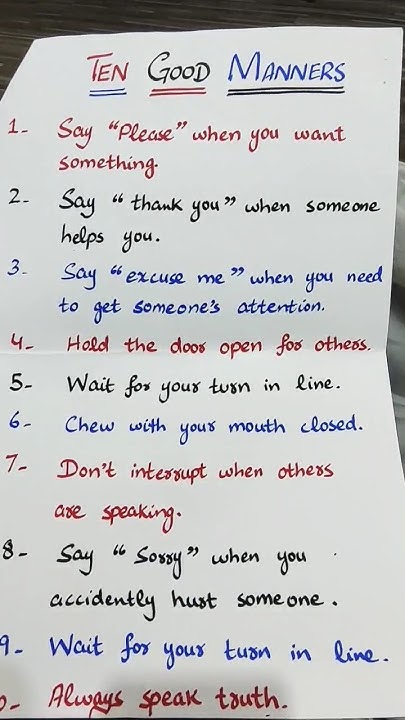 TEN GOOD MANNERS
1- Say "Please" when you want
something.
2- Say "thank you" when someone
helps you.
3- Say "excuse me" when you need
to get someone's attention.
4- Hold the door open for others.
5- Wait for your turn in line.
6- Chew with your mouth closed.
7- Don't interrupt when others
are speaking.
8- Say "Sorry" when you
accidently hurt someone.
9- Wait for your turn in line.
0- Always speak truth.